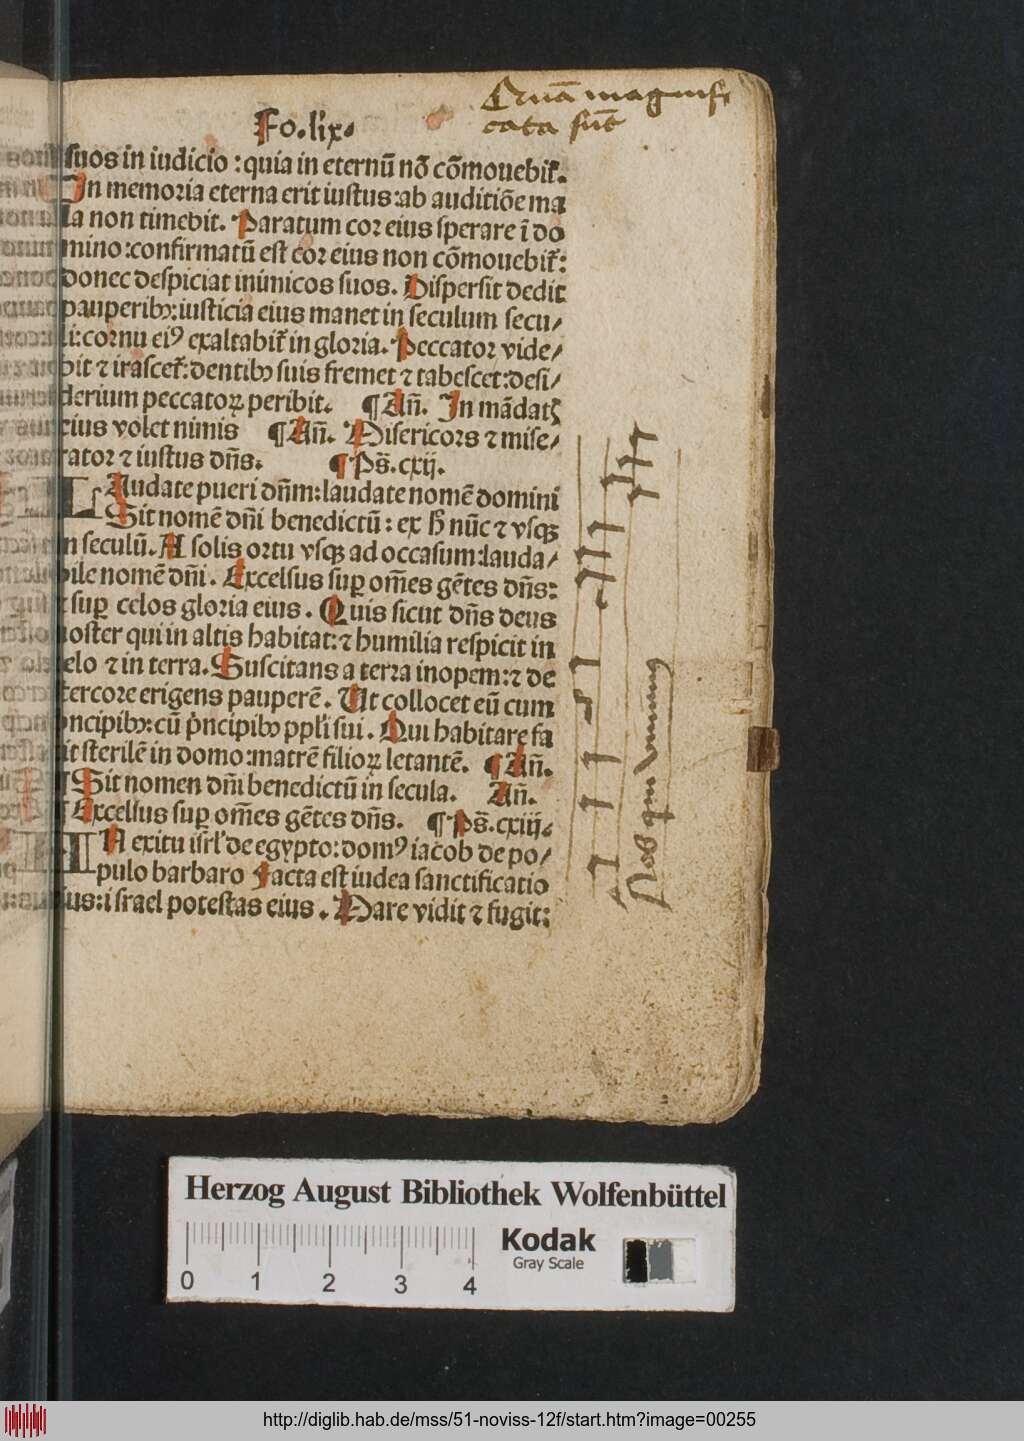 Quā magnifi
cata sūt
Fo. lix.
suos in iudicio : quia in eternū nō cōmouebit᷑.
In memoria eterna erit iustus: ab auditiōe ma
la non timebit. Paratum cor eius sperare ī do
mino: confirmatū est cor eius non cōmouebit᷑:
donec despiciat inimicos suos. Dispersit dedit
pauperibꝫ: iusticia eius manet in seculum secu/
li: cornu eiꝰ exaltabit᷑ in gloria. Peccator vide/
bit ⁊ irascet᷑: dentibꝫ suis fremet ⁊ tabescet: desi/
derium peccatoꝝ peribit. ¶ Añ. In mādatꝭ
eius volet nimis ¶ Añ. Misericors ⁊ mise/
rator ⁊ iustus dñs. ¶ Ps̄. cxij.
LAudate pueri dñm: laudate nomē domini
Sit nomē dñi benedictū : ex h̄ nūc ⁊ vsqꝫ
in seculū. A solis ortu vsqꝫ ad occasum: lauda/
bile nomē dñi. Excelsus suꝑ om̄es gētes dñs:
⁊ suꝑ celos gloria eius. Quis sicut dñs deus
noster qui in altis habitat: ⁊ humilia respicit in
celo ⁊ in terra. Suscitans a terra inopem: ⁊ de
stercore erigens pauperē. Ut collocet eū cum
pncipibꝫ: cū p̄ncipibꝫ ppl̄i sui. Qui habitare fa
cit sterilē in domo: matrē filioꝝ letantē. ¶ Añ.
¶ Sit nomen dñi benedictū in secula. Añ.
¶ Excelsus suꝑ om̄es gētes dñs. ¶ Ps̄. cxiij.
IN exitu isrl̄ de egypto: domꝰ iacob de po/
pulo barbaro Facta est iudea sanctificatio
eius: israel potestas eius. Mare vidit ⁊ fugit:
Nos qui viuimus
Herzog August Bibliothek Wolfenbüttel
Kodak
Gray Scale
0 1 2 3 4
http://diglib.hab.de/mss/51-noviss-12f/start.htm?image=00255